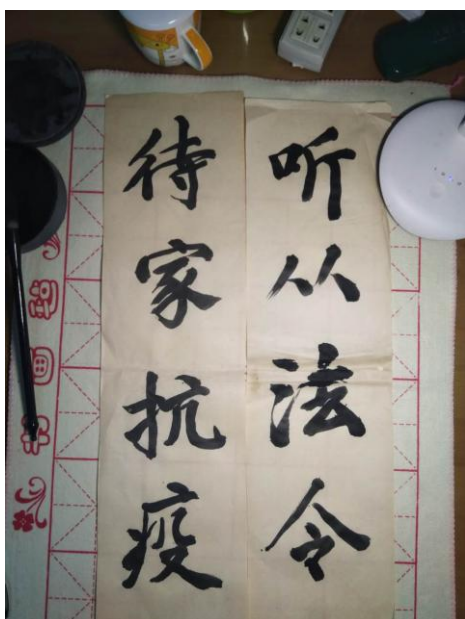 听从法令
待家抗疫